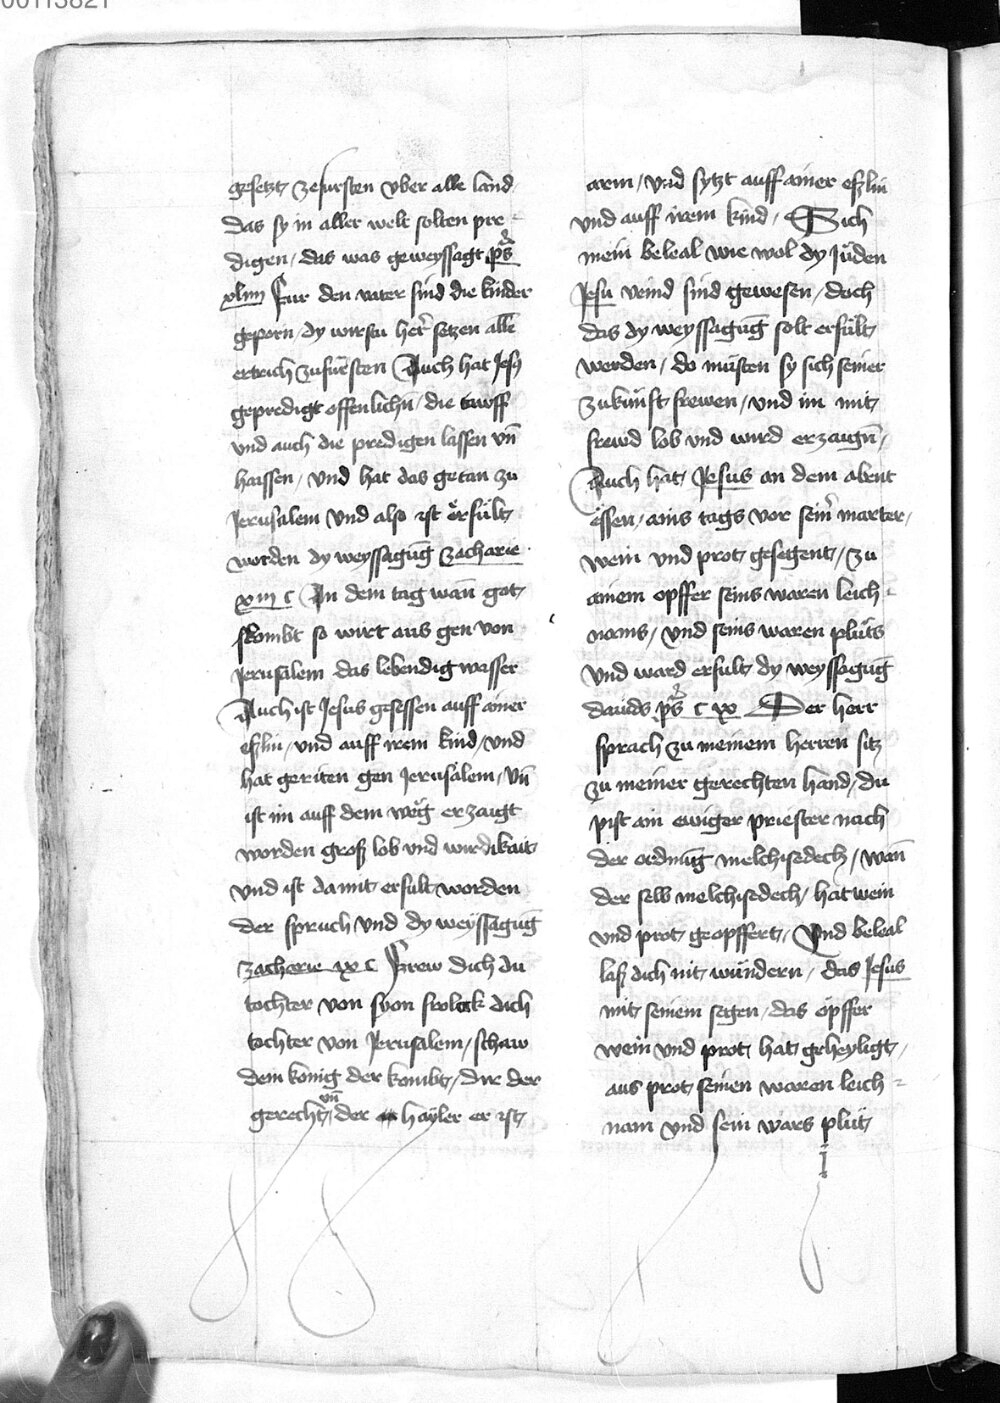 00113821
gesetzt zefursten vber alle land
das sy in aller welt solten pre-
digen / das was geweyssagt ps
xliiii Fur den vater sind die kinder
geporn / dy wirstu her setzen alle
ertrich zufürsten Auch hat Jesus
gepredigt offenlichn / die tawff
vnd auch die predigen lassen vn̄
haissen / vnd hat das getan zu
Jerusalem vnd also ist erfült
worden dy weyssagūg zacharie
xiiii c An dem tag wan̄ got
kombt so wirt aus gen von
Jerusalem das lebendig wasser
Auch ist Jesus gesessen auff ainer
eslin / vnd auff irem kind / vnd
hat geriten gen Jerusalem / vn̄
ist im auff dem weg erzaigt
worden groß lob vnd wirdikait
vnd ist damit erfült worden
der spruch vnd dy weyssagūg
zacharie ix c Frew dich du
tochter von syon frolock dich
tochter von Jerusalem / schaw
dem konig der kombt / dir der
gerecht / vn̄ der hayler er ist
arm / vnd sytzt auff ainer eslin
vnd auff irem kind / Sich
mein beleal wie wol dy Jüden
Jesu veind sind gewesen / doch
das dy weyssagūg solt erfült
werden / do müsten sy sich seiner
zukünft frewen / vnd im mit
frewd lob vnd wird erzaign̄ /
Auch hat Jesus an dem abent
essen / ains tags vor sein̄ marter /
wein vnd prot gesegent / zu
ainem opffer seins waren leich-
nams / vnd seins waren plüts
vnd ward erfult dy weyssagūg
dauids ps c ix Der herr
sprach zu meinem herren sitz
zu meiner gerechten hand / du
pist ain ewiger priester nach
der ordnūg melchisedech / wan̄
der selb melchisedech / hat wein
vnd prot geopffert / Vnd beleal
laß dich nit wündern / das Jesus
mit seinem segen / das opffer
wein vnd prot hat geheyligt /
aus prot seinen waren leich-
nam vnd sein wars plüt